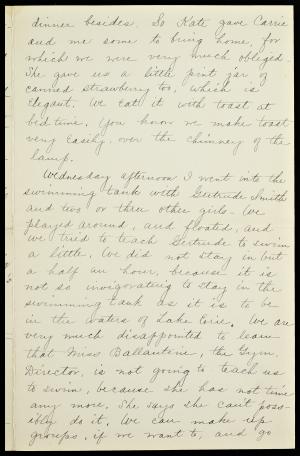 dinner besides. So Kate gave Carrie
and me some to bring home, for
which we were very much obliged.
She gave us a little pint jar of
canned strawberry too, which is
elegant. We eat it with toast at
bed time. You know we make toast
very easily, over the chimney of the
lamp.
Wednesday afternoon I went into the
swimming tank with Gertrude Smith
and two or three other girls. We
played around, and floated, and
we tried to teach Gertrude to swim
a little. We did not stay in but
a half an hour, because it is
not so invigorating to stay in the
swimming tank as it is to be
in the waters of Lake Erie. We are
very much disappointed to learn
that Miss Ballantine, the Gym.
Director, is not going to teach us
to swim, because she has not time
any more. She says she can't poss-
ibly do it. We can make up
groups, if we want to, and go